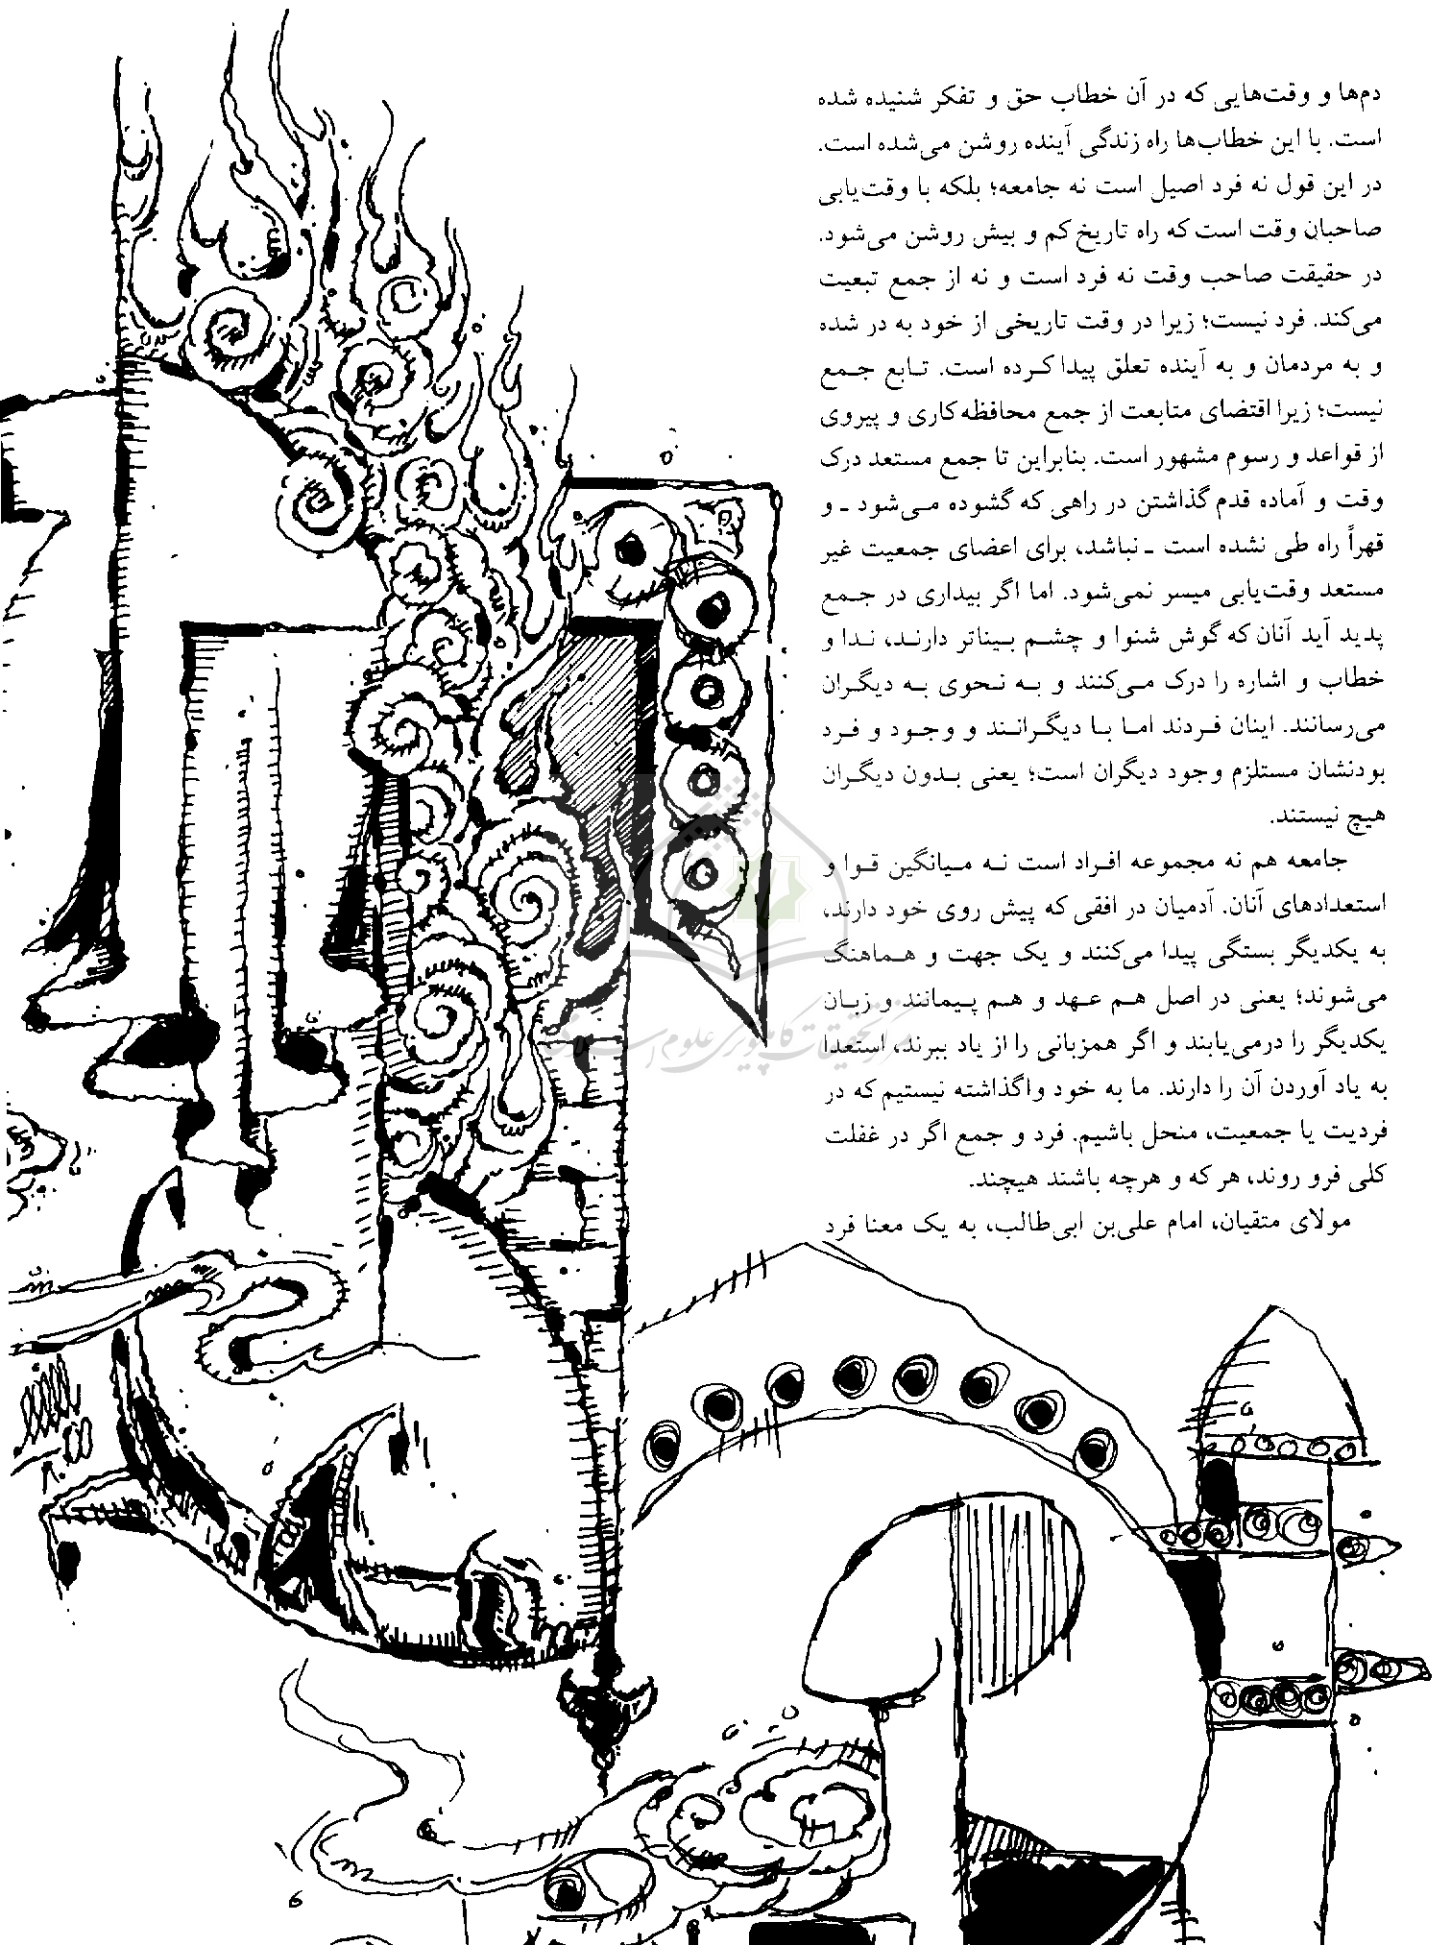 دم‌ها و وقت‌هایی که در آن خطاب حق و تفکر شنیده شده
است. با این خطاب‌ها راه زندگی آینده روشن می‌شده است.
در این قول نه فرد اصیل است نه جامعه؛ بلکه با وقت‌یابی
صاحبان وقت است که راه تاریخ کم و بیش روشن می‌شود.
در حقیقت صاحب وقت نه فرد است و نه از جمع تبعیت
می‌کند. فرد نیست؛ زیرا در وقت تاریخی از خود به در شده
و به مردمان و به آینده تعلق پیدا کرده است. تابع جمع
نیست؛ زیرا اقتضای متابعت از جمع محافظه‌کاری و پیروی
از قواعد و رسوم مشهور است. بنابراین تا جمع مستعد درک
وقت و آماده قدم گذاشتن در راهی که گشوده می‌شود ـ و
قهراً راه طی نشده است ـ نباشد، برای اعضای جمعیت غیر
مستعد وقت‌یابی میسر نمی‌شود. اما اگر بیداری در جمع
پدید آید آنان که گوش شنوا و چشم بیناتر دارند، ندا و
خطاب و اشاره را درک می‌کنند و به نحوی به دیگران
می‌رسانند. اینان فردند اما با دیگرانند و وجود و فرد
بودنشان مستلزم وجود دیگران است؛ یعنی بدون دیگران
هیچ نیستند.
جامعه هم نه مجموعه افراد است نه میانگین قوا و
استعدادهای آنان. آدمیان در افقی که پیش روی خود دارند،
به یکدیگر بستگی پیدا می‌کنند و یک جهت و هماهنگ
می‌شوند؛ یعنی در اصل هم عهد و هم پیمانند و زبان
یکدیگر را درمی‌یابند و اگر همزبانی را از یاد ببرند، استعدا
به یاد آوردن آن را دارند. ما به خود واگذاشته نیستیم که در
فردیت یا جمعیت، منحل باشیم. فرد و جمع اگر در غفلت
کلی فرو روند، هر که و هرچه باشند هیچند.
مولای متقیان، امام علی‌بن ابی‌طالب، به یک معنا فرد
مرکز تحقیقات کامپیوتری علوم اسلامی